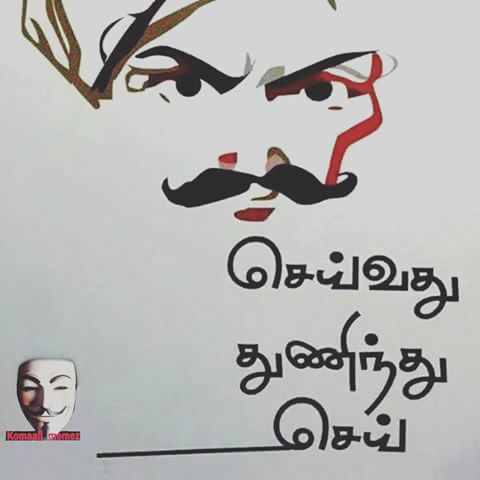 செய்வது
துணிந்து
செய்
Komaali memez